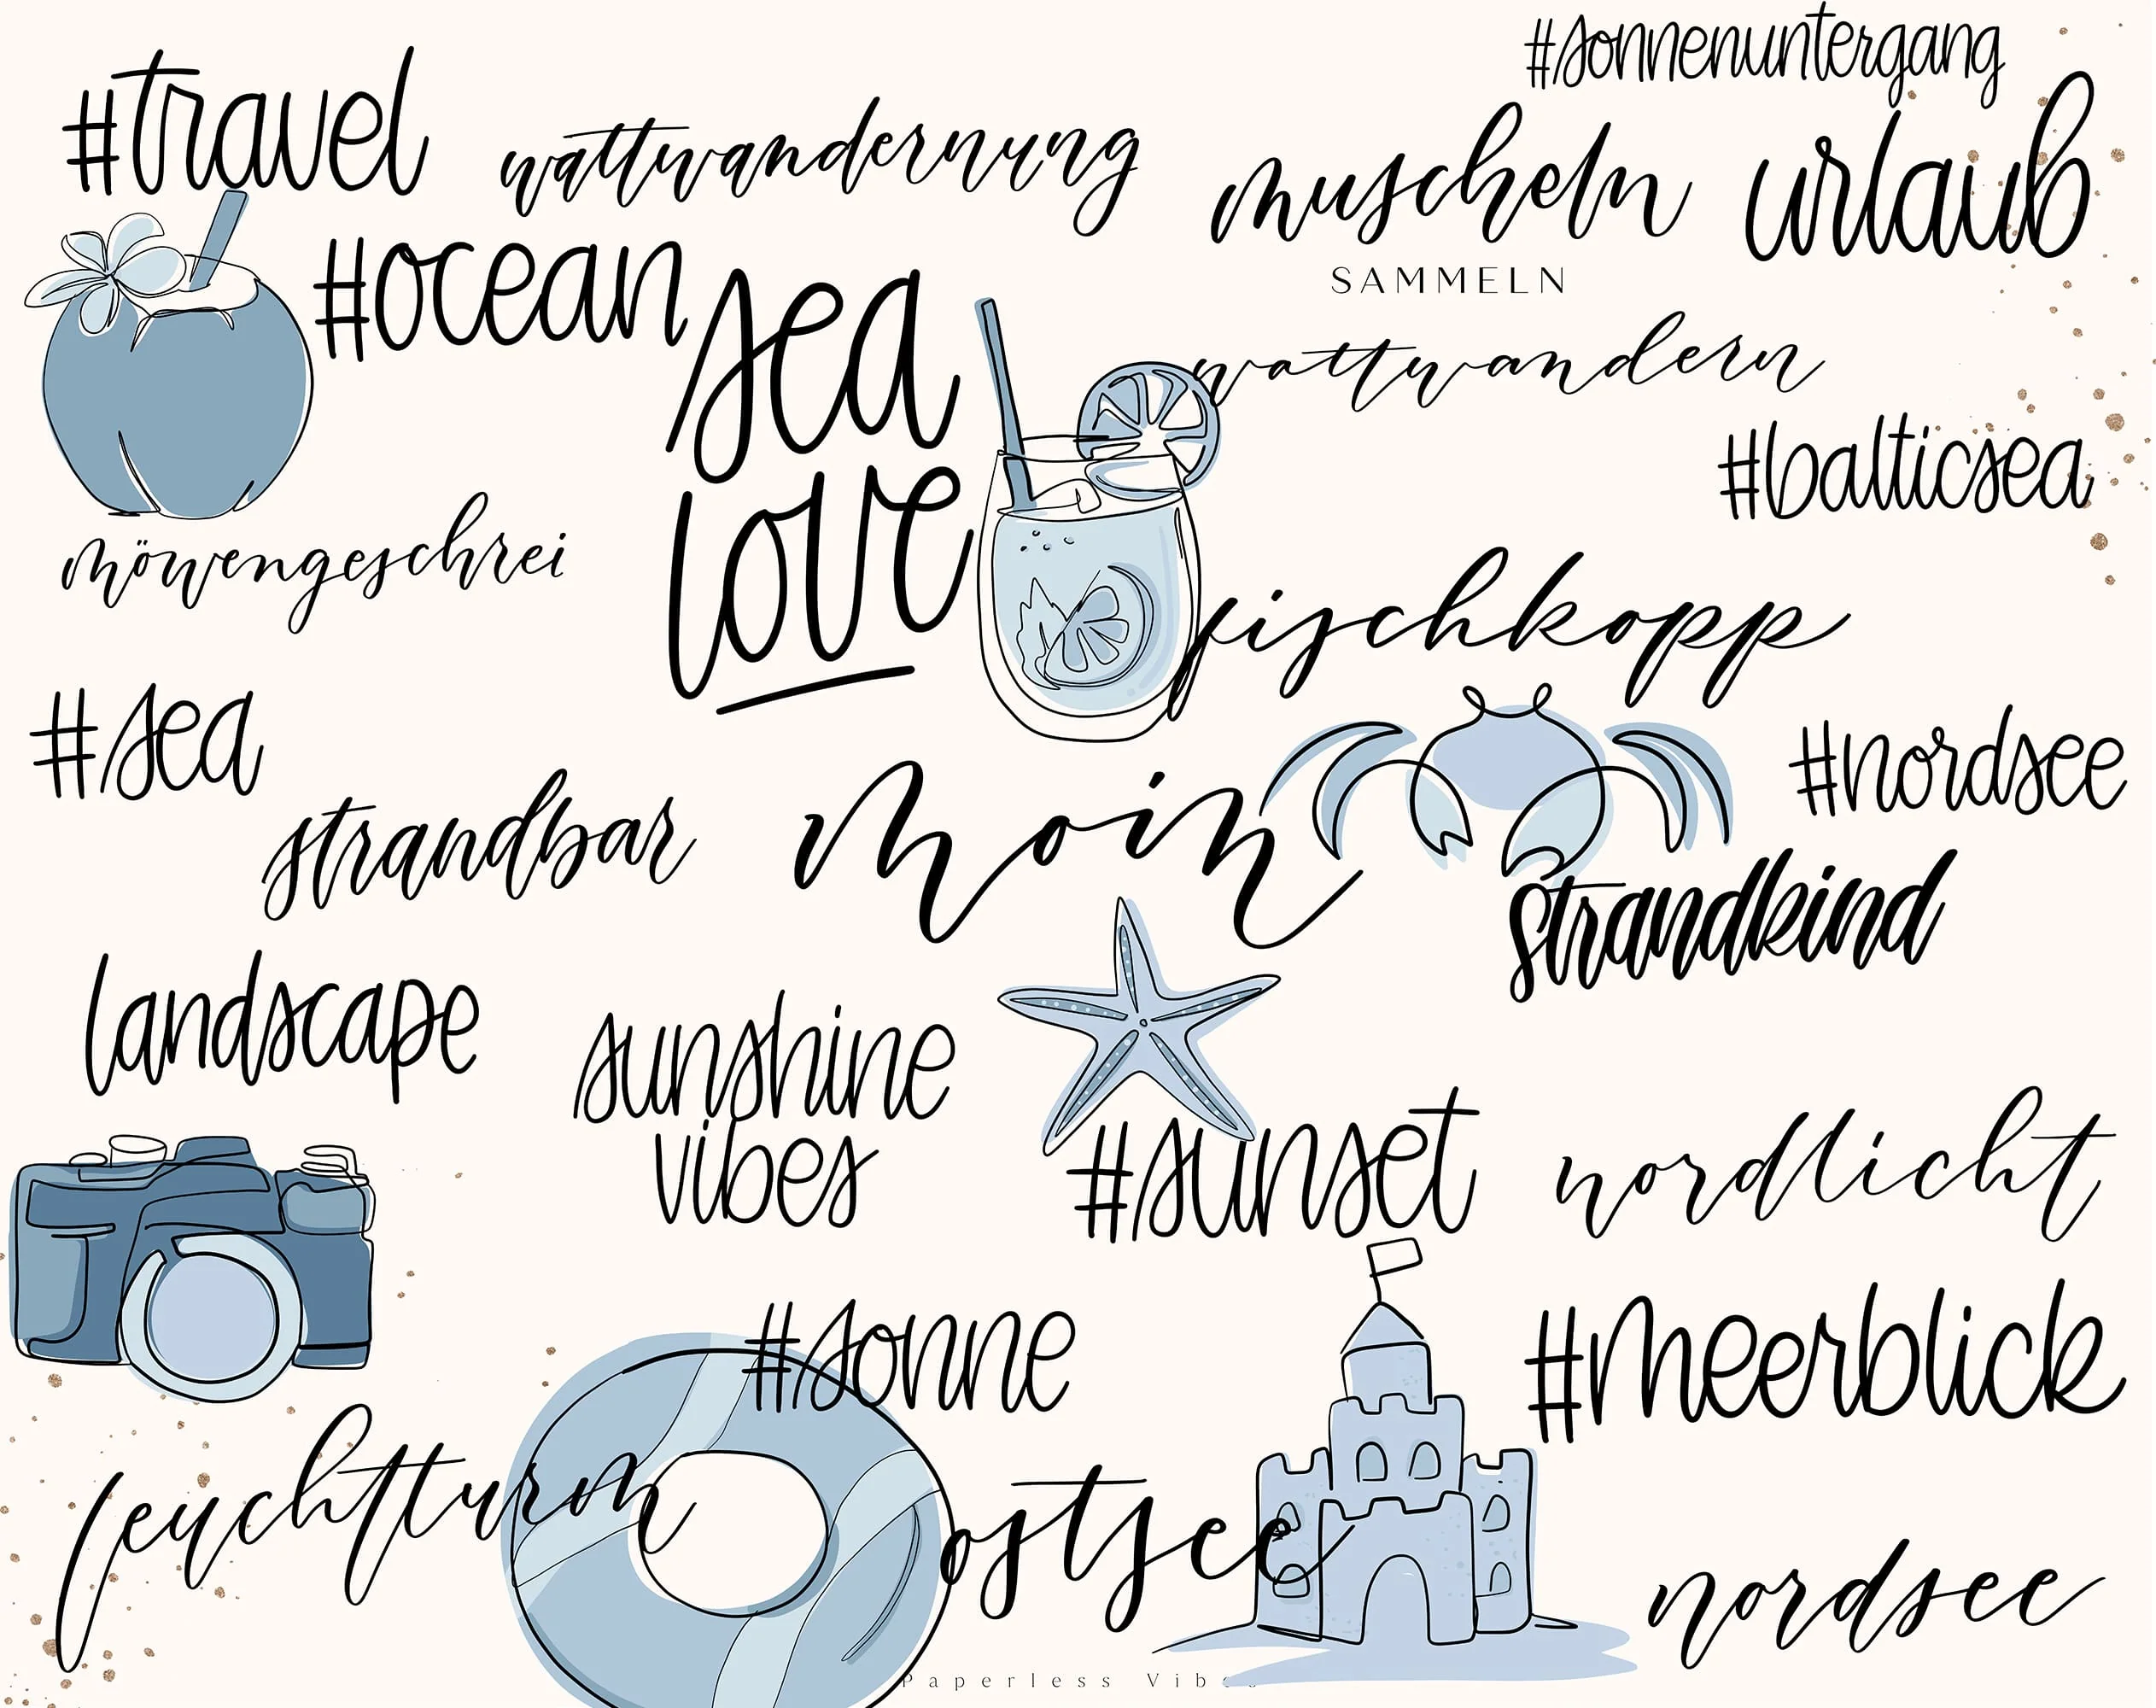 #sonnenuntergang
#travel
wattwandernung
muscheln
SAMMELN
urlaub
#ocean
sea
love
wattwandern
#balticsea
möwengeschrei
fischkopp
#sea
#nordsee
strandbar
moin
strandkind
landscape
sunshine
vibes
#sunset
nordlicht
#sonne
#meerblick
leuchtturm
ostsee
nordsee
Paperless Vibes